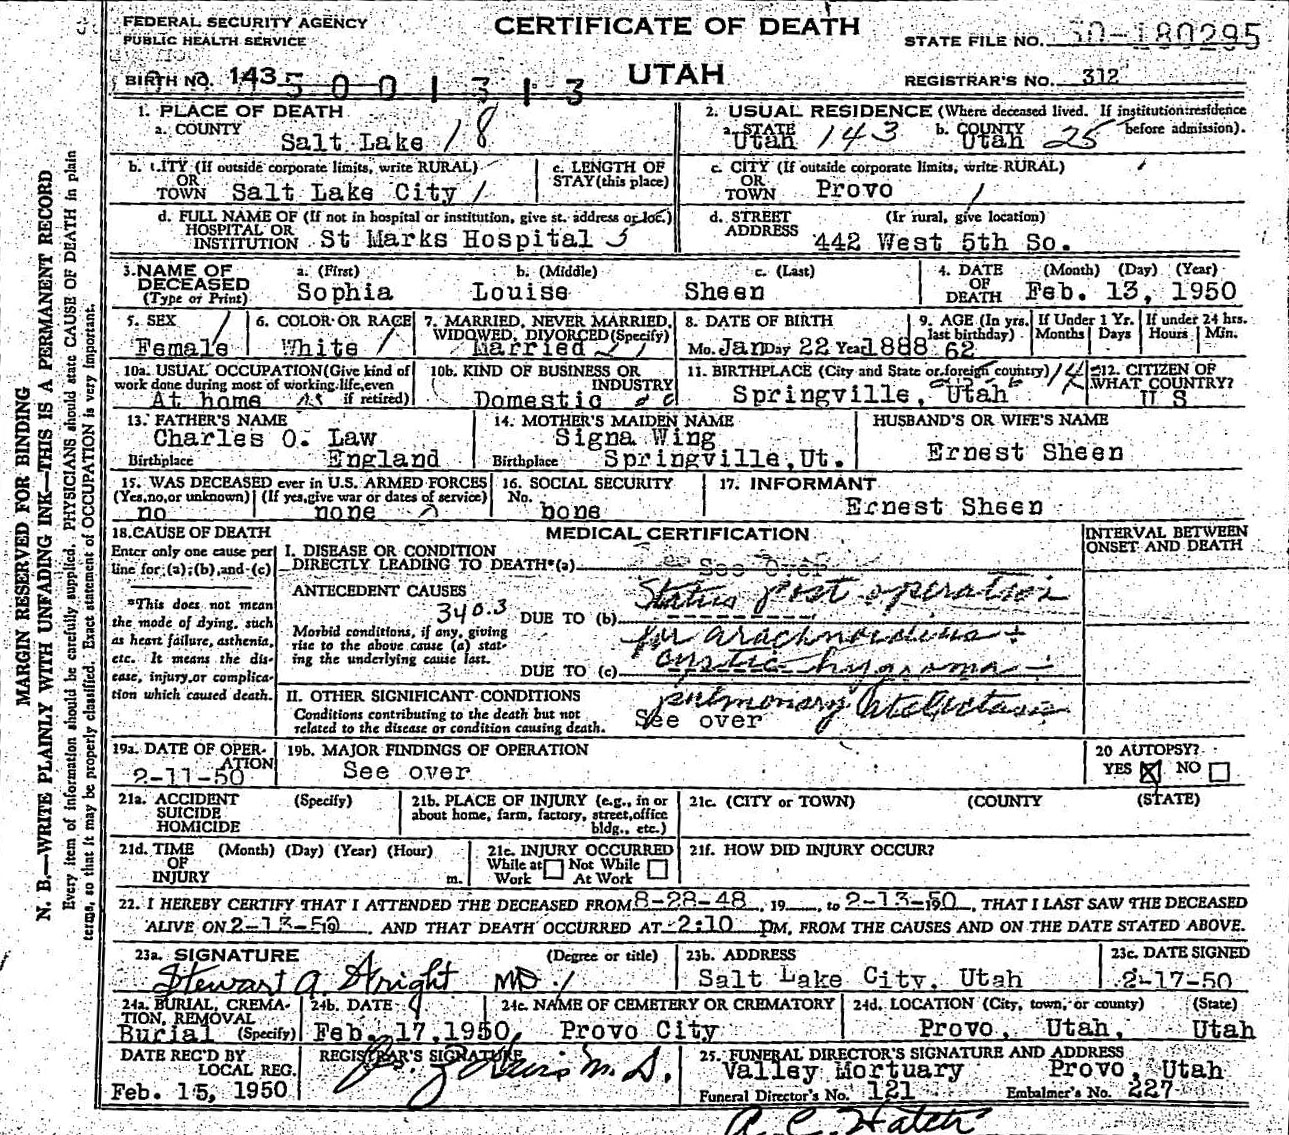 FEDERAL SECURITY AGENCY
PUBLIC HEALTH SERVICE
CERTIFICATE OF DEATH
UTAH
STATE FILE NO. 50-180295
BIRTH NO. 143 5 0 0 1 3 1 3
REGISTRAR'S NO. 312
MARGIN RESERVED FOR BINDING
N. B.—WRITE PLAINLY WITH UNFADING INK—THIS IS A PERMANENT RECORD
Every item of information should be carefully supplied. PHYSICIANS should state CAUSE OF DEATH in plain
terms, so that it may be properly classified. Exact statement of OCCUPATION is very important.
1. PLACE OF DEATH
a. COUNTY
Salt Lake 18
2. USUAL RESIDENCE (Where deceased lived. If institution:residence
before admission).
a. STATE
Utah 143
b. COUNTY
Utah 25
b. CITY (If outside corporate limits, write RURAL)
OR
TOWN Salt Lake City 1
c. LENGTH OF
STAY (this place)
c. CITY (If outside corporate limits, write RURAL)
OR
TOWN Provo 1
d. FULL NAME OF (If not in hospital or institution, give st. address or loc.)
HOSPITAL OR
INSTITUTION St Marks Hospital 5
d. STREET (If rural, give location)
ADDRESS
442 West 5th So.
3. NAME OF
DECEASED
(Type or Print)
a. (First)
Sophia
b. (Middle)
Louise
c. (Last)
Sheen
4. DATE (Month) (Day) (Year)
OF
DEATH Feb. 13, 1950
5. SEX
Female 1
6. COLOR OR RACE
White 1
7. MARRIED, NEVER MARRIED,
WIDOWED, DIVORCED (Specify)
Married
8. DATE OF BIRTH
Mo. Jan Day 22 Year 1888
9. AGE (In yrs.
last birthday)
62
If Under 1 Yr.
Months Days
If under 24 hrs.
Hours Min.
10a. USUAL OCCUPATION (Give kind of
work done during most of working life, even
if retired)
At home
10b. KIND OF BUSINESS OR
INDUSTRY
Domestic
11. BIRTHPLACE (City and State or foreign country)
Springville, Utah
12. CITIZEN OF
WHAT COUNTRY?
U S
13. FATHER'S NAME
Charles O. Law
Birthplace England
14. MOTHER'S MAIDEN NAME
Signa Wing
Birthplace Springville, Ut.
HUSBAND'S OR WIFE'S NAME
Ernest Sheen
15. WAS DECEASED ever in U.S. ARMED FORCES
(Yes, no, or unknown) (If yes, give war or dates of service)
no none
16. SOCIAL SECURITY
No.
none
17. INFORMANT
Ernest Sheen
18. CAUSE OF DEATH
Enter only one cause per
line for (a), (b), and (c)
*This does not mean
the mode of dying, such
as heart failure, asthenia,
etc. It means the dis-
ease, injury, or complica-
tion which caused death.
MEDICAL CERTIFICATION
INTERVAL BETWEEN
ONSET AND DEATH
I. DISEASE OR CONDITION
DIRECTLY LEADING TO DEATH*(a) See Over
ANTECEDENT CAUSES
340.3
Morbid conditions, if any, giving
rise to the above cause (a) stat-
ing the underlying cause last.
Status post operation
DUE TO (b)
for arachnoiditis +
cystic hygroma -
DUE TO (c)
pulmonary atelectasis
II. OTHER SIGNIFICANT CONDITIONS
Conditions contributing to the death but not
related to the disease or condition causing death.
See over
19a. DATE OF OPER-
ATION
2-11-50
19b. MAJOR FINDINGS OF OPERATION
See over
20 AUTOPSY?
YES NO
21a. ACCIDENT (Specify)
SUICIDE
HOMICIDE
21b. PLACE OF INJURY (e.g., in or
about home, farm, factory, street, office
bldg., etc.)
21c. (CITY or TOWN) (COUNTY) (STATE)
21d. TIME (Month) (Day) (Year) (Hour)
OF
INJURY m.
21e. INJURY OCCURRED
While at Not While
Work At Work
21f. HOW DID INJURY OCCUR?
22. I HEREBY CERTIFY THAT I ATTENDED THE DECEASED FROM 8-28-48, 19 , to 2-13-50, THAT I LAST SAW THE DECEASED
ALIVE ON 2-13-50, AND THAT DEATH OCCURRED AT 2:10 pM, FROM THE CAUSES AND ON THE DATE STATED ABOVE.
23a. SIGNATURE (Degree or title)
Stewart A. Wright MD
23b. ADDRESS
Salt Lake City, Utah
23c. DATE SIGNED
2-17-50
24a. BURIAL, CREMA-
TION, REMOVAL
Burial (Specify)
24b. DATE
Feb. 17, 1950,
24c. NAME OF CEMETERY OR CREMATORY
Provo City
24d. LOCATION (City, town, or county) (State)
Provo, Utah, Utah
DATE REC'D BY
LOCAL REG.
Feb. 15, 1950
REGISTRAR'S SIGNATURE
M. D.
25. FUNERAL DIRECTOR'S SIGNATURE AND ADDRESS
Valley Mortuary Provo, Utah
Funeral Director's No. 121 Embalmer's No. 227
A. C. Hatch